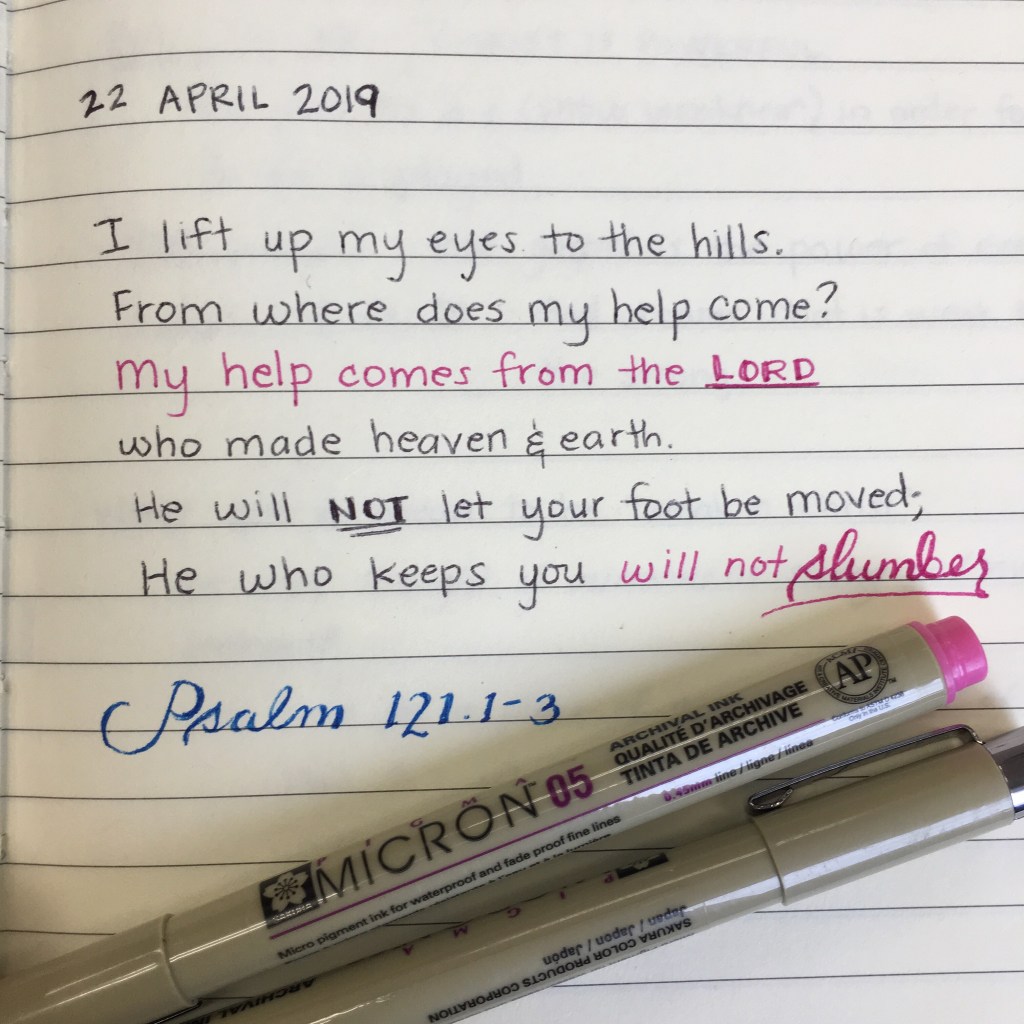 22 APRIL 2019
I lift up my eyes to the hills.
From where does my help come?
my help comes from the LORD
who made heaven & earth.
He will NOT let your foot be moved;
He who keeps you will not slumber
Psalm 121.1-3
AP
ARCHIVAL INK
QUALITÉ D'ARCHIVAGE
TINTA DE ARCHIVE
0.45mm line / ligne / línea
PIGMA
MICRON 05
Micro pigment ink for waterproof and fade proof fine lines
PIGMA
SAKURA COLOR PRODUCTS CORPORATION
Japan / Japon / Japón
ARCHIVAL